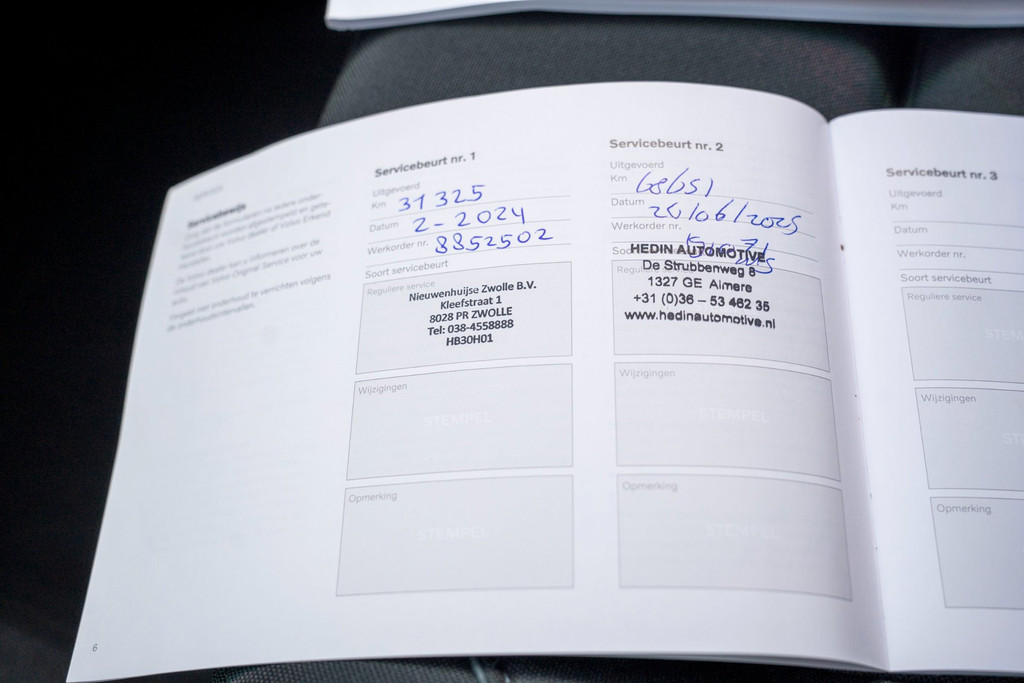 Servicebewijs
Servicebeurt nr. 1
Uitgevoerd
Km 31 325
Datum 2-2024
Werkorder nr. 8852502
Soort servicebeurt
Reguliere service
Nieuwenhuijse Zwolle B.V.
Kleefstraat 1
8028 PR ZWOLLE
Tel: 038-4558888
HB30H01
Wijzigingen
STEMPEL
Opmerking
STEMPEL
Servicebeurt nr. 2
Uitgevoerd
Km 68651
Datum 26/06/2025
Werkorder nr.
HEDIN AUTOMOTIVE
De Strubbenweg 8
1327 GE Almere
+31 (0)36 - 53 462 35
www.hedinautomotive.nl
Wijzigingen
STEMPEL
Opmerking
STEMPEL
Servicebeurt nr. 3
Uitgevoerd
Km
Datum
Werkorder nr.
Soort servicebeurt
Reguliere service
STEM
Wijzigingen
ST
Opmerking
6